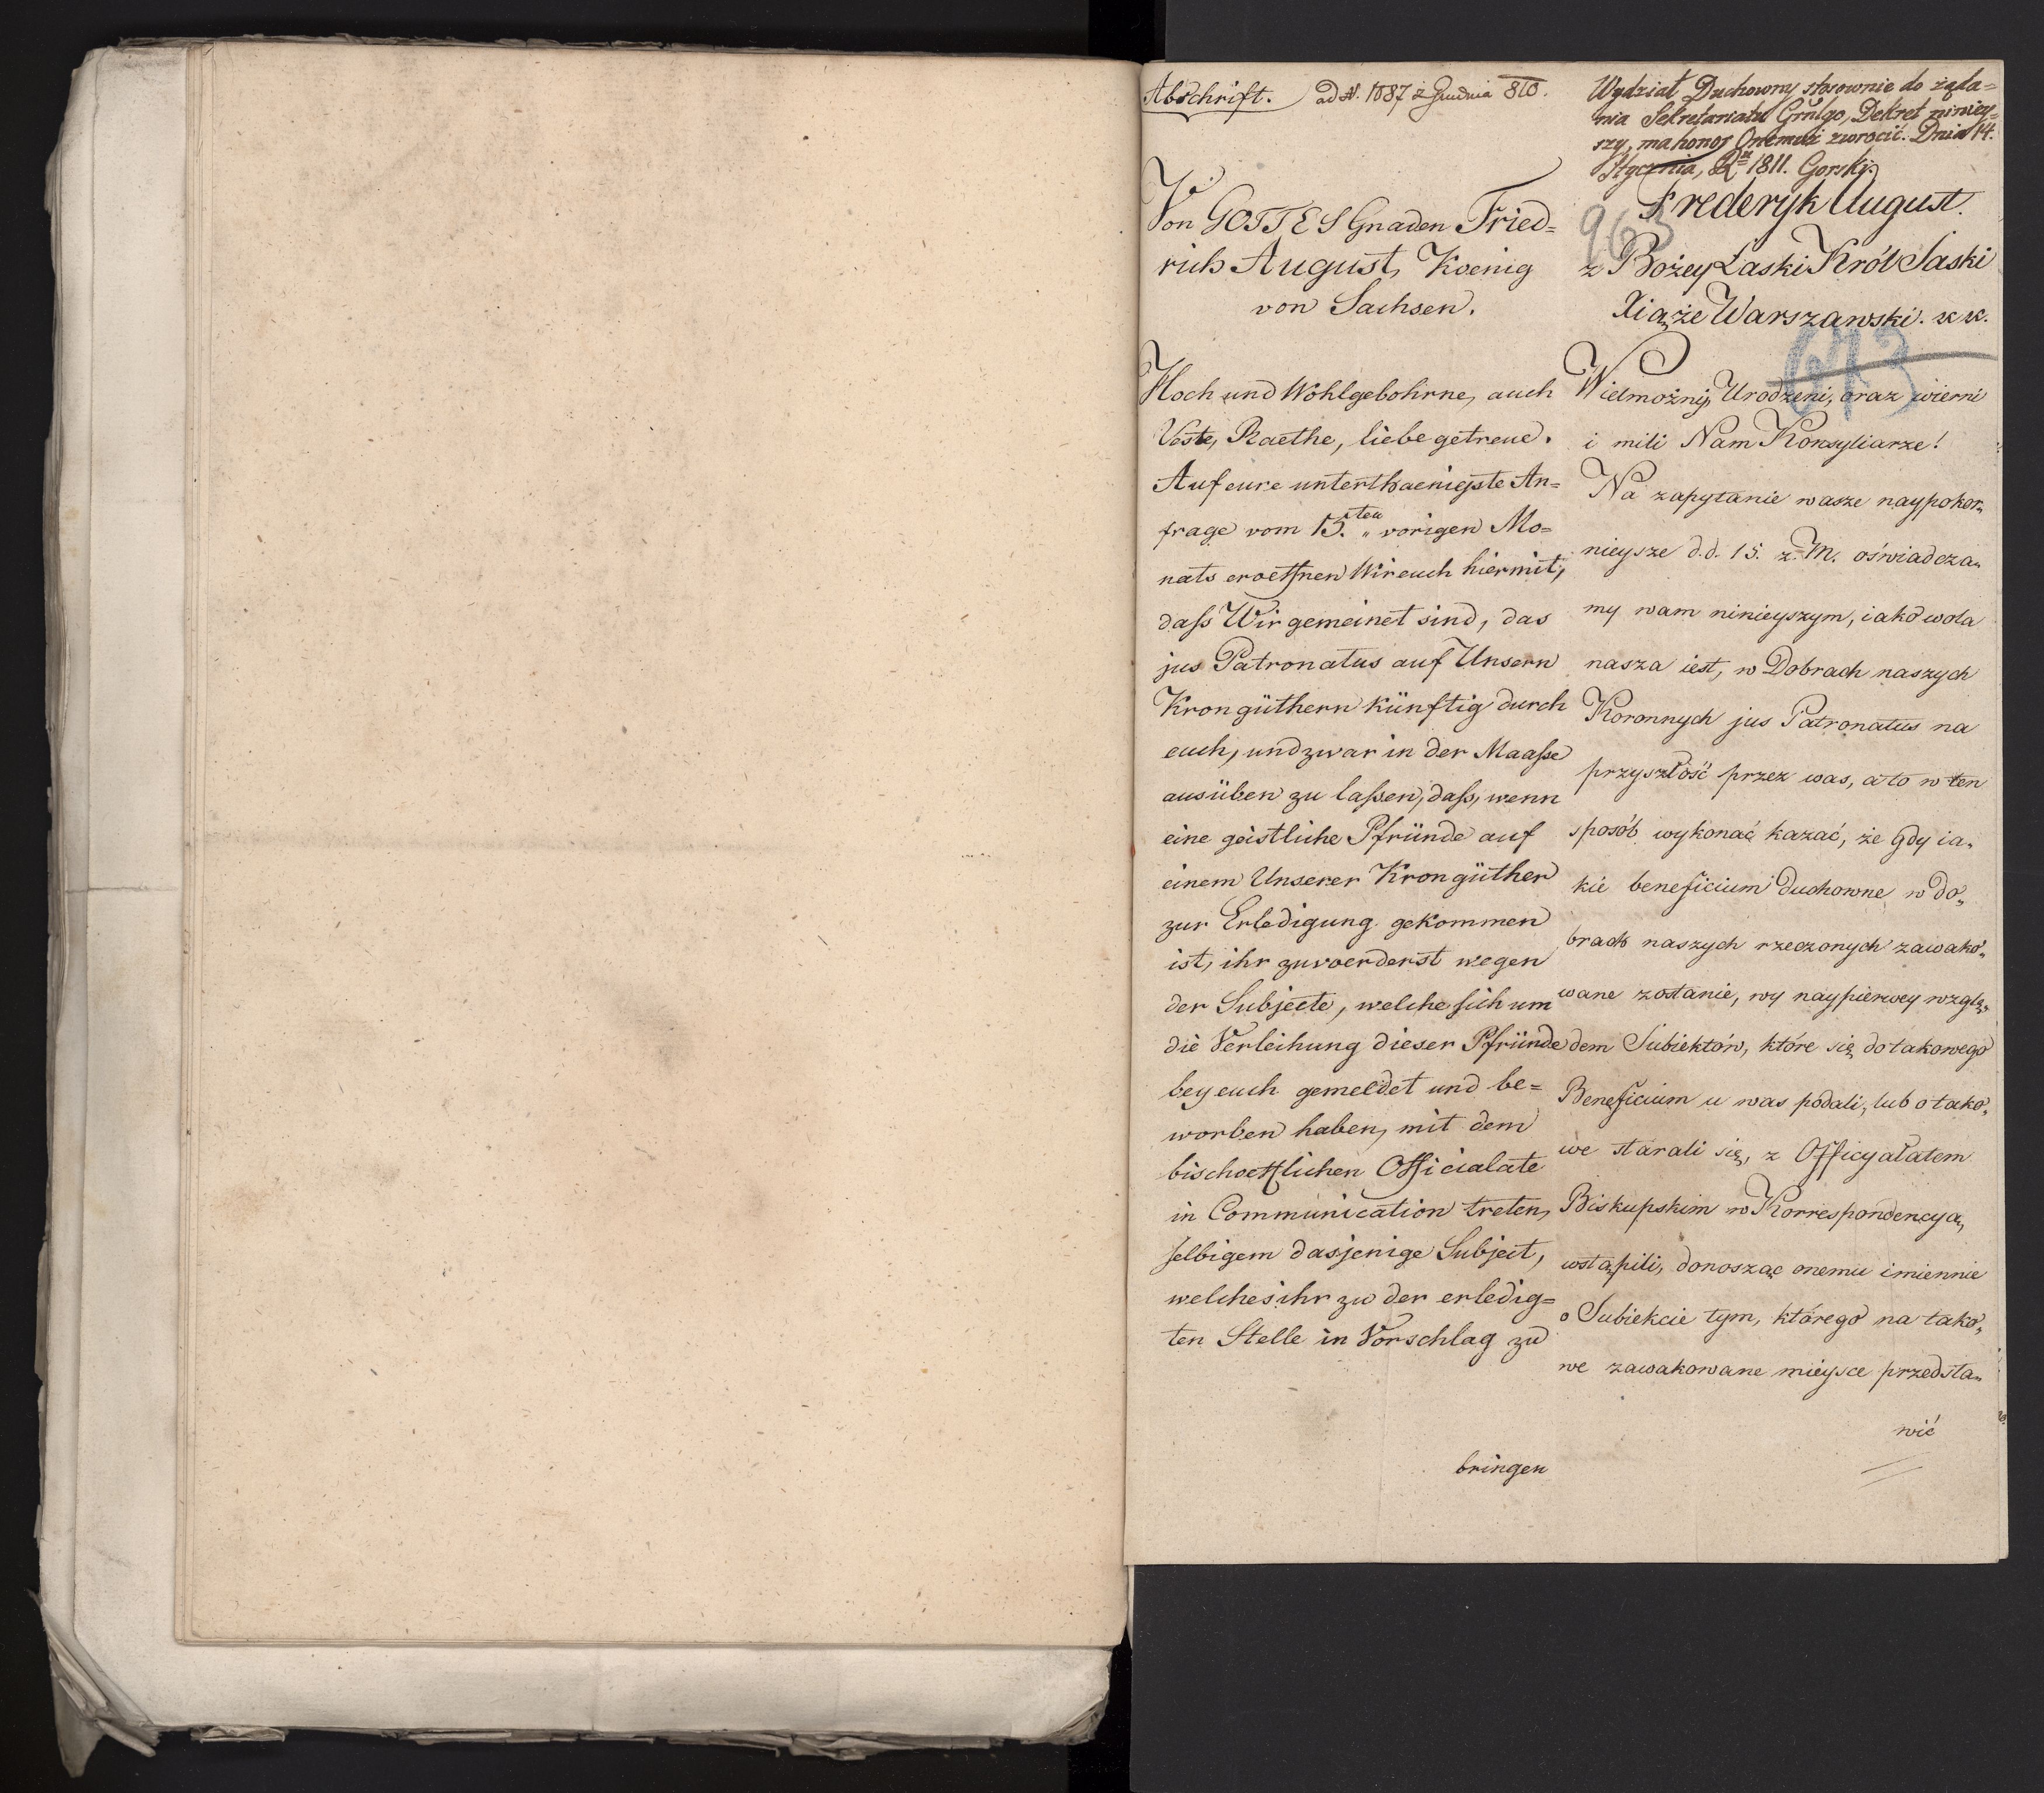 Abschrift. ad N. 1087 z Grudnia 810.
Von GOTTES Gnaden Fried=
rich August, Koenig
von Sachsen.
Hoch und Wohlgebohrne, auch
Veste, Raethe, liebe getreue.
Auf eure unterthaenigste An=
frage vom 15.ten vorigen Mo=
nats eroeffnen Wir euch hiermit,
daß Wir gemeinet sind, das
jus Patronatus auf Unsern
Krongüthern künftig durch
euch, und zwar in der Maaße
ausüben zu laßen, daß, wenn
eine geistliche Pfründe auf
einem Unserer Krongüther
zur Erledigung gekommen
ist, ihr zuvoerderst wegen
der Subjecte, welche sich um
die Verleihung dieser Pfründe
bey euch gemeldet und be=
worben haben, mit dem
bischoefflichen Officialate
in Communication treten,
selbigem dasjenige Subject,
welches ihr zu der erledig=
ten Stelle in Vorschlag zu
bringen
Wydział Duchowny stosownie do żąda=
nia Sekretariatu Grnlgo, Dekret niniey=
szy, ma honor Onemuż zwrócić. Dnia 14.
Stycznia, R. 1811. Gorski.
Frederyk August.
963
z Bożey Łaski Król Saski
Xiąże Warszawski. &&.
673
Wielmożni, Urodzeni, oraz wierni
i mili Nam Konsyliarze!
Na zapytanie wasze naypokor„
nieysze d.d. 15. z. M. oświadcza„
my wam ninieyszym, iako wola
nasza iest, w Dobrach naszych
Koronnych jus Patronatus na
przyszłość przez was, a to w ten
sposób wykonać kazać, że gdy ia„
kie beneficium duchowne w do„
brach naszych rzeczonych zawako„
wane zostanie, wy naypierwey wzglę„
dem Subiektów, które się do takowego
Beneficium u was podali, lub o tako„
we starali się, z Officyalatem
Biskupskim w Korrespondencyą,
wstąpili, donosząc onemu imiennie
o Subiekcie tym, którego na tako„
we zawakowane mieysce przedsta„
wić